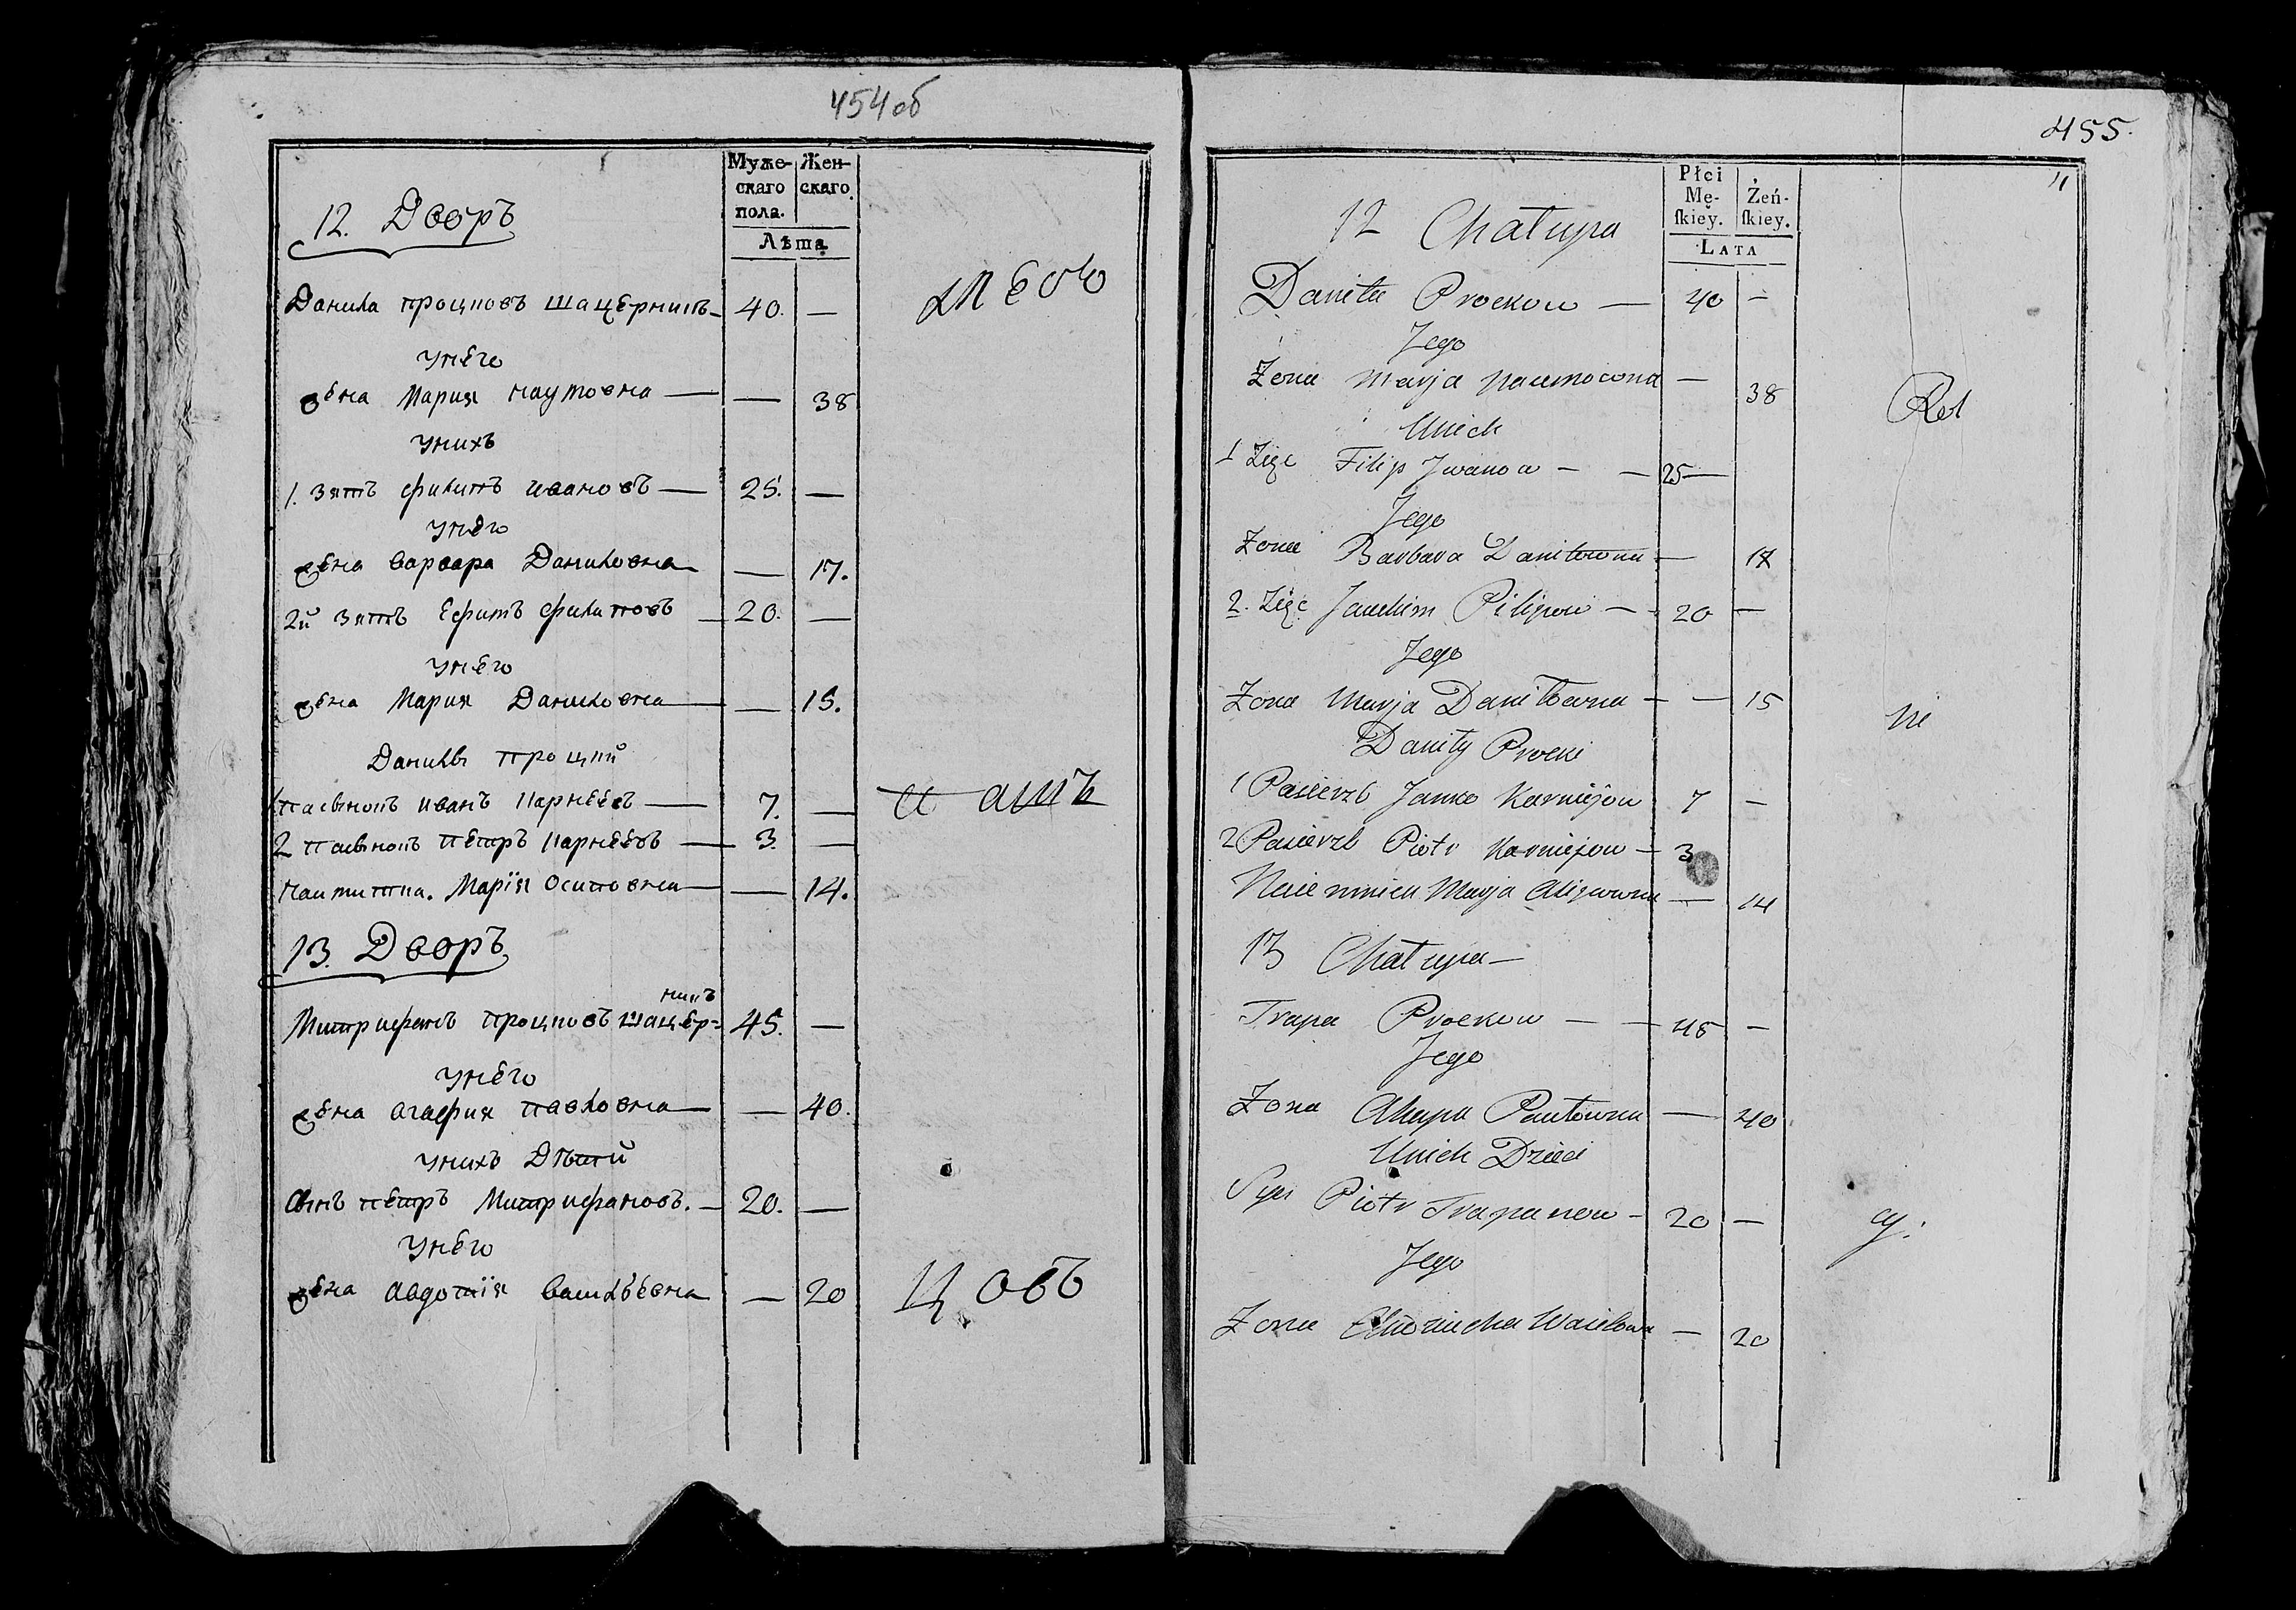 454об
Муже-
скаго
пола.
Жен-
скаго
Лѣта
12. Дворъ
Данила процковъ шацерникъ — 40. —
Унего
жена Мария наумовна — — 38
Унихъ
1. Зять филипъ ивановъ — 25. —
Унего
жена варвара Даниловна — 17.
2й Зять Ефимъ филиповъ — 20. —
Унего
жена Мария Даниловна — — 15.
Данилы процкий
1 пасынокъ иванъ Карнеевъ — 7. —
2 пасынокъ пётръ Карнеевъ — 3. —
Наимитка. Марія Осиповна — — 14.
и аикъ
13. Дворъ
никъ
Митрифанъ процковъ шацер- 45. —
Унего
жена агафия павловна — — 40.
Унихъ Дѣтий
сынъ пётръ Митрифановъ. — 20. —
Унего
жена авдотия васильевна — 20
Ц овъ
455.
11
Płci
Mę-
ſkiey.
Żeń-
ſkiey.
LATA
12 Chałupa
Daniła Prockow — 40 —
Jego
Żona Marja Naumowna — 38
Unich
1 Zięc Filip Jwanow — — 25 —
Jego
Żona Barbara Daniłowna — 17
2. Zięc Jauchim Pilipow — 20 —
Jego
Żona Marja Daniłowna — — 15
ni
Daniły Procki
1 Pasierzb Janko Karniejow 7 —
2 Pasierzb Piotr Karniejow — 3
Naiemnica Marja Osipowna — 14
13 Chałupa —
Trapa Prockow — — 45 —
Jego
Żona Ahapa Pawłowna — 40
Unich Dzieci
Syn Piotr Trapanow — 20 —
cy.
Jego
Żona — 20